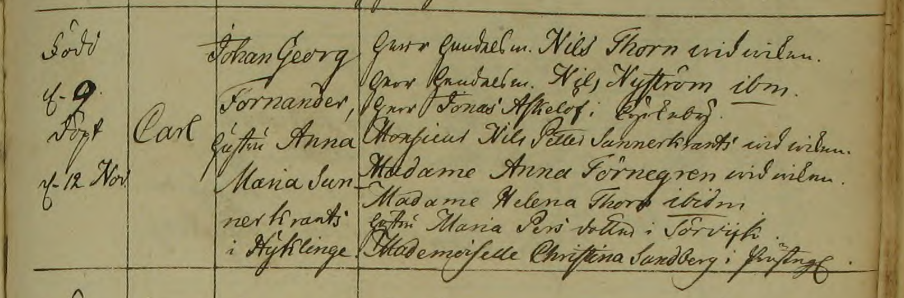 Född
d. 9
Döpt
d. 12 Nov
Carl
Johan Georg
Fornander,
hustru Anna
Maria Sun-
nerkrants
i Hyklinge
Herr Handelsm. Nils Thorn
Herr Handelsm. Nils Nyström ibm.
Herr Jonas Askelöf i
Monsieur Nils Petter Sunnerkrants
Madame Anna Förnegren
Madame Helena Thorn ibidm
hustru Maria Pers dotter i Törvijk
Mademoiselle Christina Sundberg i